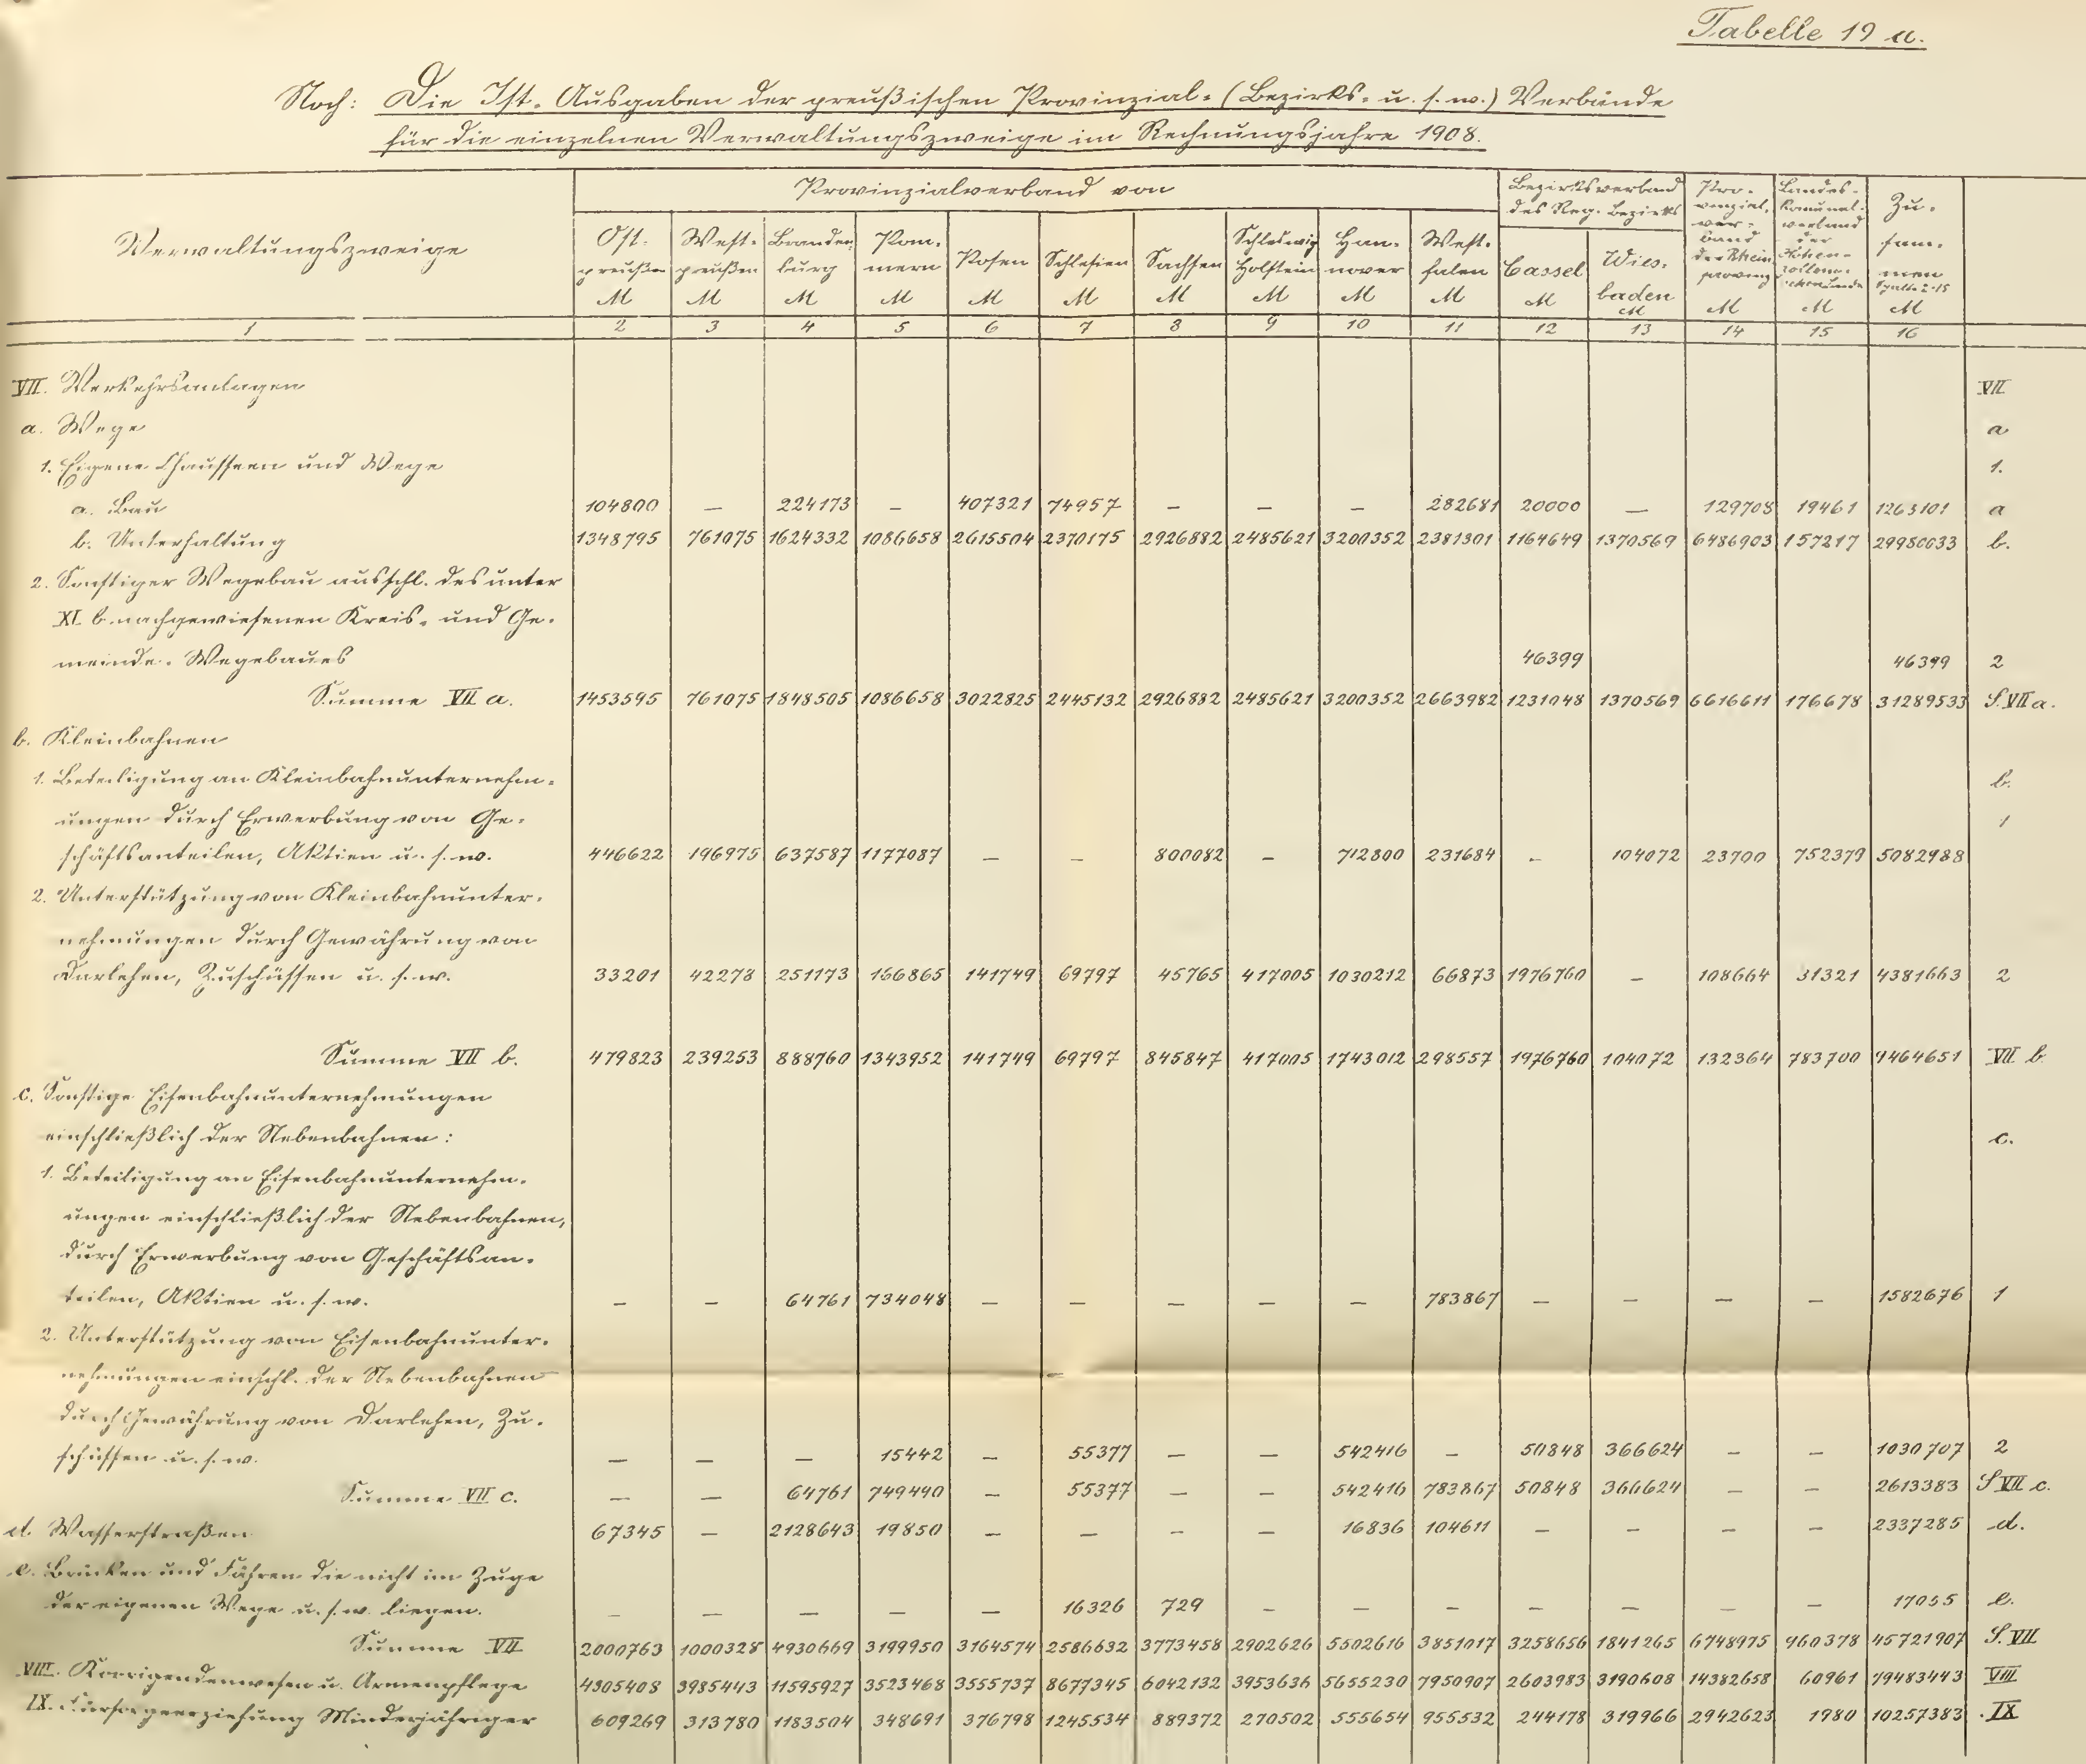 Tabelle 19 a.
Noch: Die Ist-Ausgaben der preußischen Provinzial- (Bezirks- u. s. w.) Verbände
für die einzelnen Verwaltungszweige im Rechnungsjahre 1908.
Verwaltungszweige
Provinzialverband von
Bezirksverband des Reg. Bezirks
Ost-preußen M
West-preußen M
Branden-burg M
Pom-mern M
Posen M
Schlesien M
Sachsen M
Schleswig Holstein M
Han-nover M
West-falen M
Cassel M
Wies-baden M
Pro-vinzial-ver-band der Rhein provinz M
Landes-Komunal-verband der Hohen-zollern- M
Zu-sam-men Spalte 2-15 M
1 2 3 4 5 6 7 8 9 10 11 12 13 14 15 16
VII. Verkehrsanlagen VII
a. Wege a
1. Eigene Chausseen und Wege 1.
a. Bau 104800 — 224173 — 407321 74957 — — — 282681 20000 — 129708 19461 1263101 a
b. Unterhaltung 1348795 761075 1624332 1086658 2615504 2370175 2926882 2485621 3200352 2381301 1164649 1370569 6486903 157217 29980033 b.
2. Sonstiger Wegebau ausschl. des unter
XI b nachgewiesenen Kreis- und Ge-
meinde-Wegebaues 46399 46399 2
Summe VII a. 1453595 761075 1848505 1086658 3022825 2445132 2926882 2485621 3200352 2663982 1231048 1370569 6616611 176678 31289533 S. VII a.
b. Kleinbahnen
1. Beteiligung an Kleinbahnunternehm- b.
ungen durch Erwerbung von Ge- 1
schäftsanteilen, Aktien u. s. w. 446622 196975 637587 1177087 — — 800082 — 712800 231684 — 104072 23700 752379 5082988
2. Unterstützung von Kleinbahnunter-
nehmungen durch Gewährung von
Darlehen, Zuschüssen u. s. w. 33201 42278 251173 166865 141749 69797 45765 417005 1030212 66873 1976760 — 108664 31321 4381663 2
Summe VII b. 479823 239253 888760 1343952 141749 69797 845847 417005 1743012 298557 1976760 104072 132364 783700 9464651 VII b
c. Sonstige Eisenbahnunternehmungen
einschließlich der Nebenbahnen: c.
1. Beteiligung an Eisenbahnunternehm-
ungen einschließlich der Nebenbahnen,
durch Erwerbung von Geschäftsan-
teilen, Aktien u. s. w. — — 64761 734048 — — — — — 783867 — — — — 1582676 1
2. Unterstützung von Eisenbahnunter-
nehmungen einschl. der Nebenbahnen
durch Gewährung von Darlehen, Zu-
schüssen u. s. w. — — — 15442 — 55377 — — 542416 — 50848 366624 — — 1030707 2
Summe VII c. — — 64761 749490 — 55377 — — 542416 783867 50848 366624 — — 2613383 S VII c.
d. Wasserstraßen 67345 — 2128643 19850 — — — — 16836 104611 — — — — 2337285 d.
e. Brücken und Fähren die nicht im Zuge
der eigenen Wege u. s. w. liegen. — — — — — 16326 729 — — — — — — — 17055 e.
Summe VII 2000763 1000328 4930669 3199950 3164574 2586632 3773458 2902626 5502616 3851017 3258656 1841265 6748975 960378 45721907 S. VII
VIII. Korrigendenwesen u. Armenpflege 4305408 3985443 11595927 3523468 3555737 8677345 6042132 3953636 5655230 7950907 2603983 3190608 14382658 60961 79483443 VIII
IX. Fürsorgeerziehung Minderjähriger 609269 313780 1183504 348691 376798 1245534 889372 270502 555654 955532 244178 319966 2942623 1980 10257383 IX